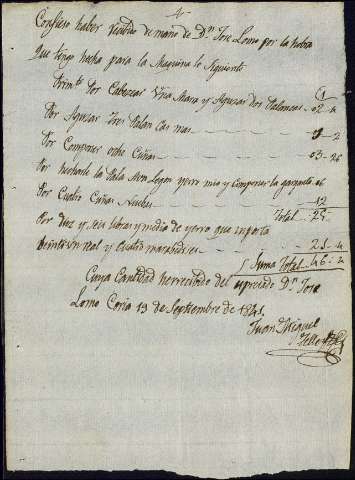 Confieso haber recibido de mano de Dn. Jose Lomo por la hobra
que tengo hecha para la Maquina lo siguiente
Primte. Por Cabezar Una Maza y Aguzar dos Palancas
Por Aguzar tres Palan Cas mas 2
Por Componer ocho Cuñas 03-26
Por hecharle la Pala Mon yerro mio y componer la garganta 06
Por Cuatro Cuñas Nuebas 12
Total 25
Por diez y seis libras y media de yerro que importa
veinte un real y Cuatro marabedises 21-4
Suma Total 46-4
Cuya Cantidad he rrecibido del espresado Dn. Jose
Lomo Coria 13 de Septiembre de 1841
Juan Miguel